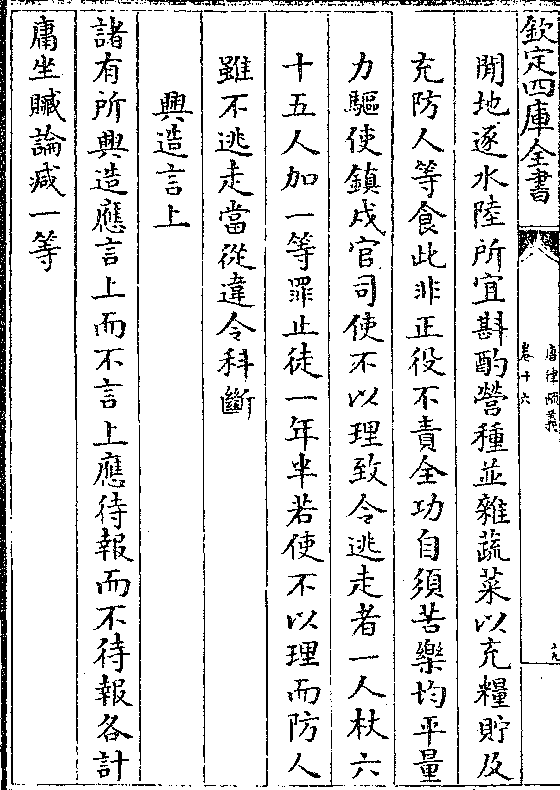 欽定四庫全書
唐律疏義
卷十六
閒地逐水陸所宜斟酌營種並雜蔬菜以充糧貯及
充防人等食此非正役不責全功自須苦樂均平量
力驅使鎮戍官司使不以理致令逃走者一人杖六
十五人加一等罪止徒一年半若使不以理而防人
雖不逃走當從違令科斷
興造言上
諸有所興造應言上而不言上應待報而不待報各計
庸坐贓論减一等